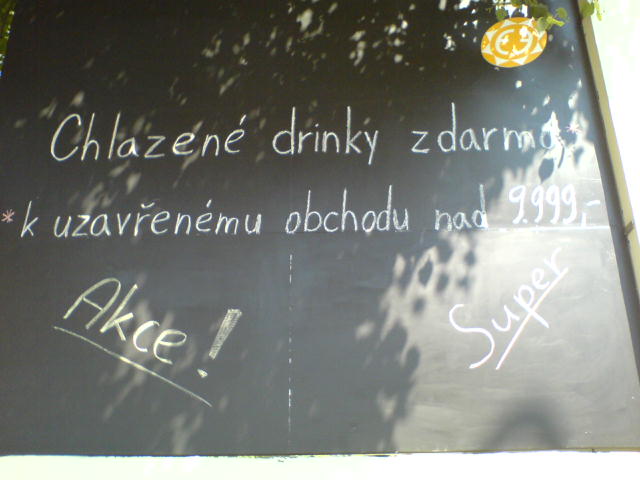 Chlazené drinky zdarma*
*k uzavřenému obchodu nad 9.999,-
Akce!
Super